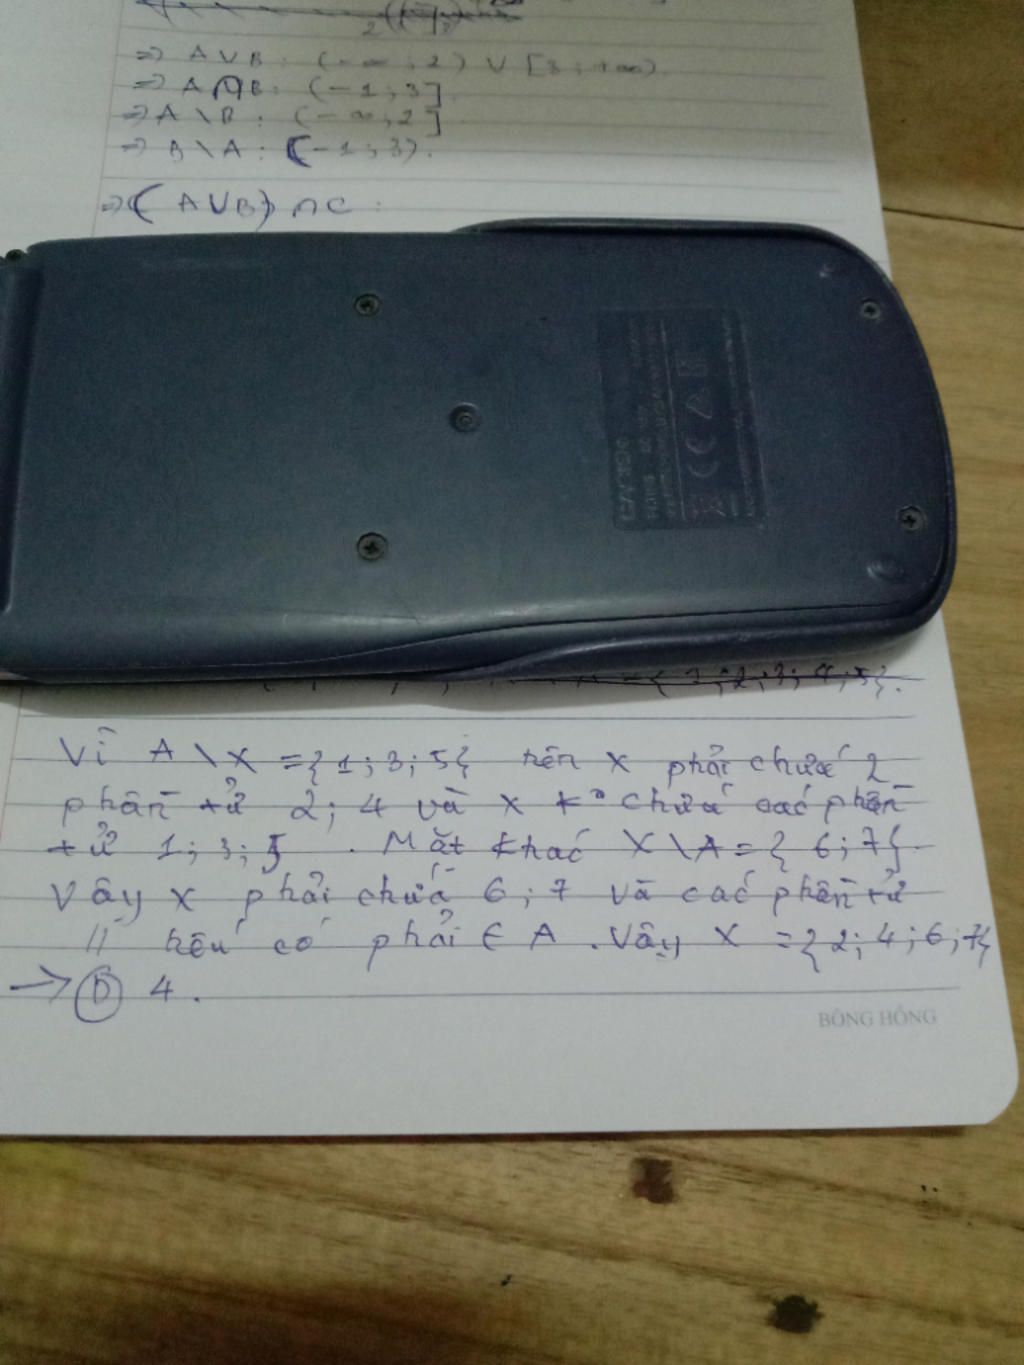 ⇒ A ∪ B : (-∞ ; 2) ∪ [3 ; +∞)
⇒ A ∩ B : (-1 ; 3]
⇒ A \ B : (-∞ ; 2]
⇒ B \ A : (-1 ; 3).
⇒ (A ∪ B) ∩ C :
CASIO
; 2 ; 3 ; 4 ; 5}.
Vì A \ X = {1 ; 3 ; 5} nên X phải chứa 2
phần tử 2 ; 4 và X k° chứa các phần
tử 1 ; 3 ; 5 . Mặt khác X \ A = { 6 ; 7}.
Vậy X phải chứa 6 ; 7 và các phần tử
// nếu có phải ∈ A . Vậy X = {2 ; 4 ; 6 ; 7}
→ D 4 .
BÔNG HỒNG